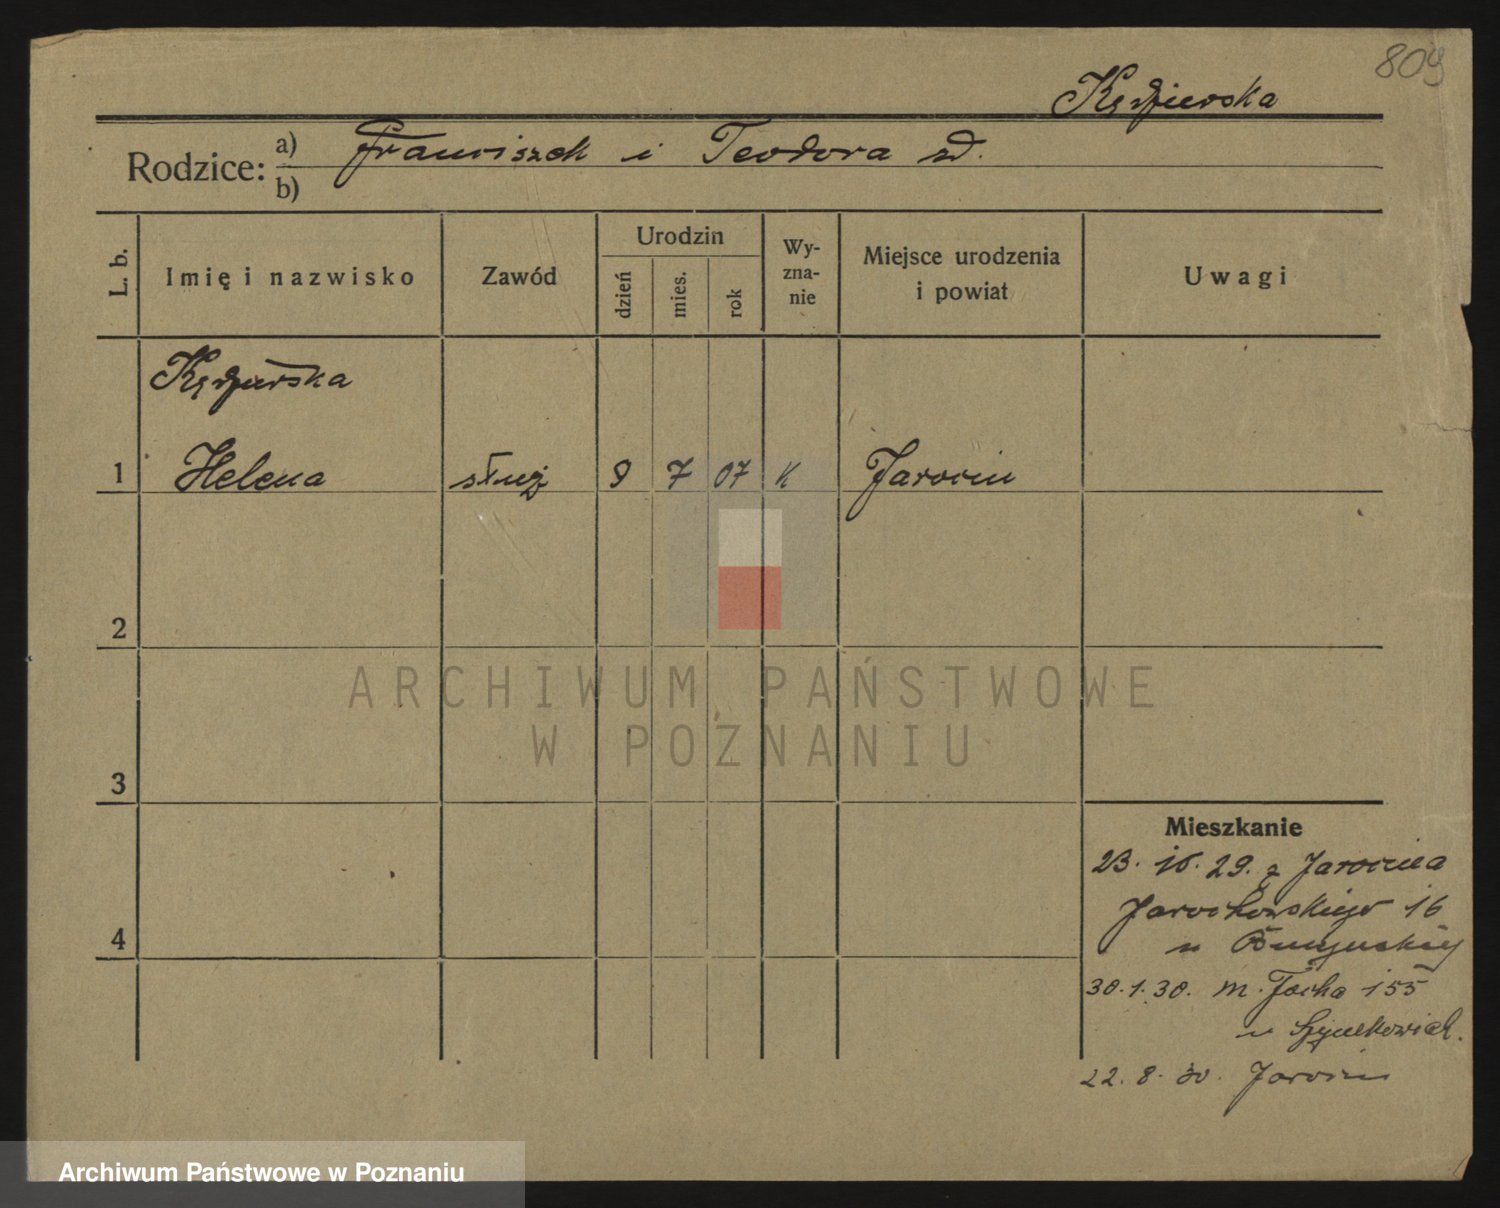 809
Kędzierska
Rodzice: a) Franciszek i Teodora zd.
b)
L. b.
Imię i nazwisko
Zawód
Urodzin
dzień
mies.
rok
Wy-
zna-
nie
Miejsce urodzenia
i powiat
Uwagi
Kędzierska
1 Helena służ 9 7 07 K Jarocin
2
ARCHIWUM PAŃSTWOWE
W POZNANIU
3
Mieszkanie
23. 10. 29. z Jarocina
Jarochowskiego 16
4
u
30.1.30. M. Focha 155
u
22. 8. 30. Jarocin
Archiwum Państwowe w Poznaniu